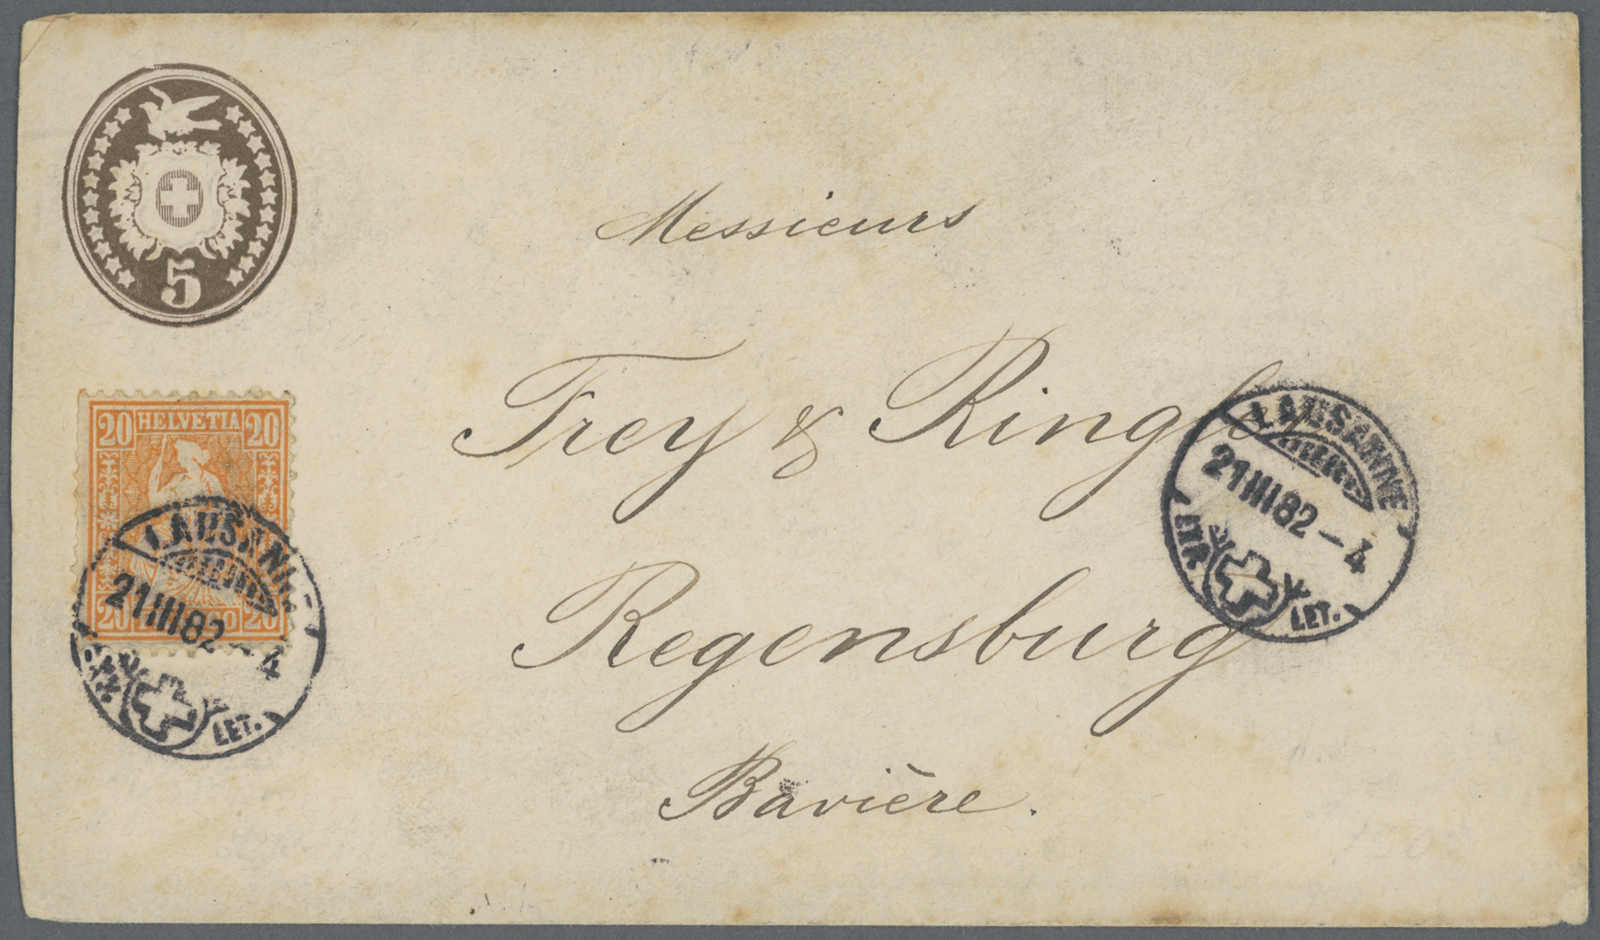 5
Messieurs
20 HELVETIA 20
Frey & Ring
LAUSANNE
21 III 82 – 4
EXP. LET.
Regensburg
Bavière.
20 20
LAUSANNE
21 III 82 – 4
EXP. LET.